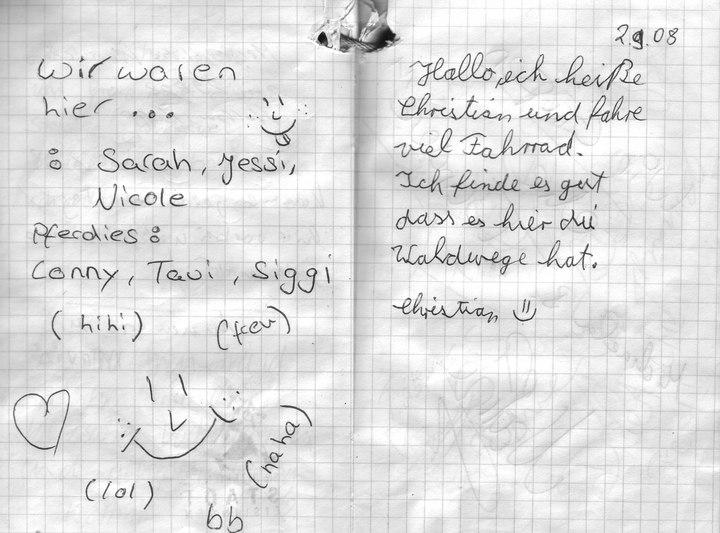 Wir waren
hier ...
: Sarah, Jessi,
Nicole
Pferdies :
Conny, Tavi, Siggi
(hihi)
(freu)
(haha)
(lol)
bb
2.9.08
Hallo, ich heiße
Christian und fahre
viel Fahrrad.
Ich finde es gut
dass es hier die
Waldwege hat.
Christian